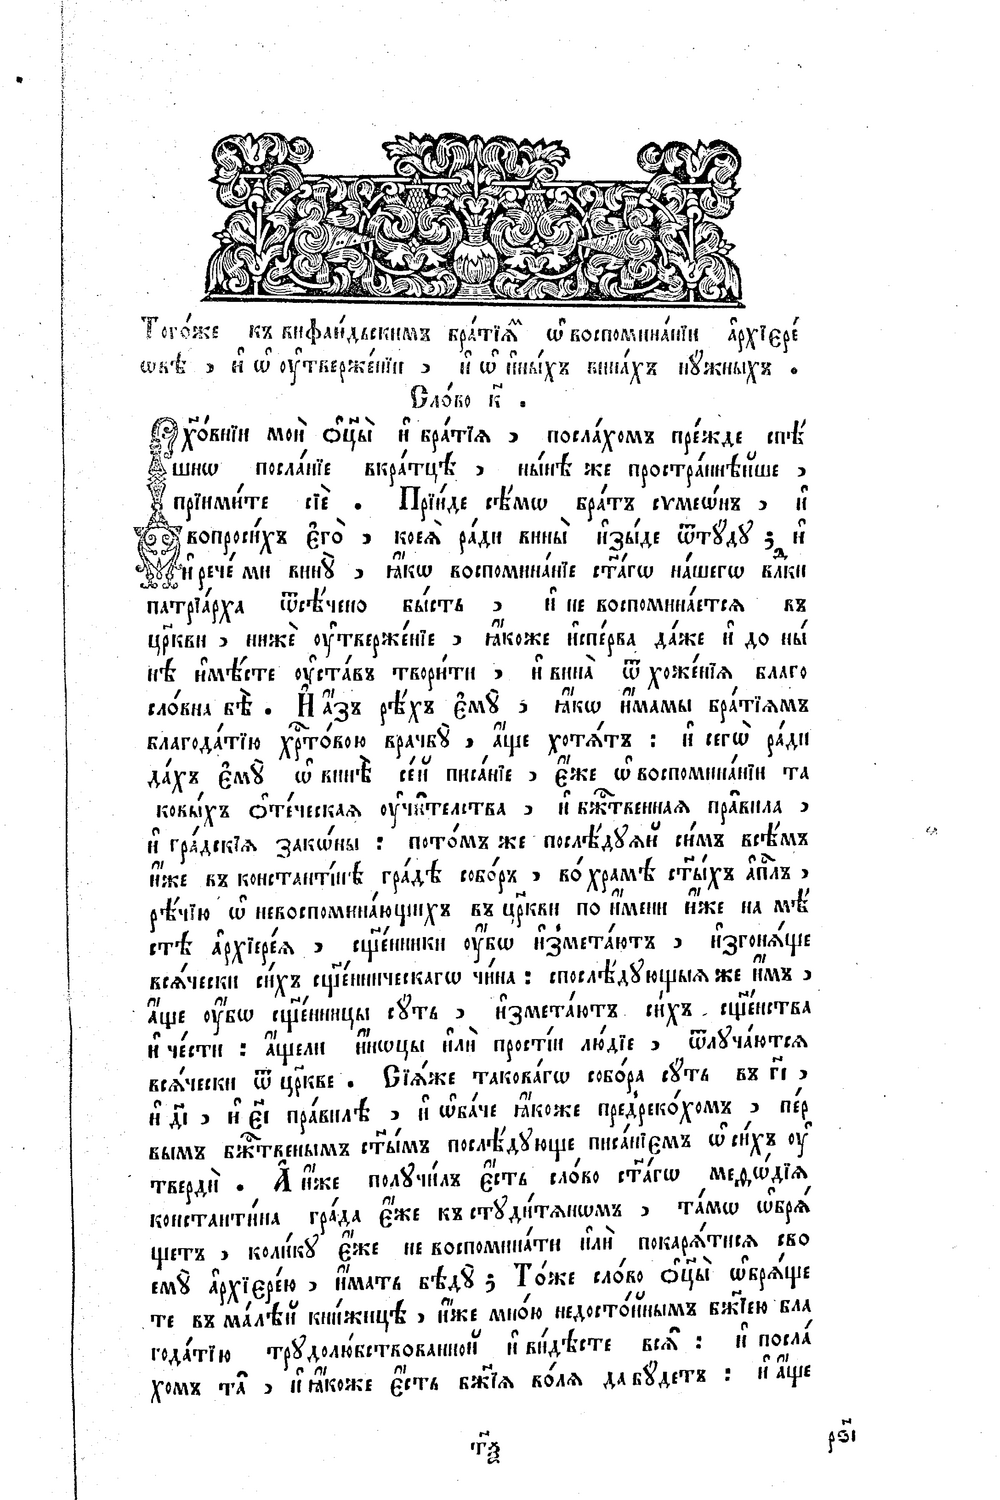 Тогѡ́же къ виѳаи́дьскимъ бра́тїѧⷨ ѡ҆ воспомина́нїи а҆рхїере́
ѡвѣ , и҆ ѡ҆ ѹ҆твержⷷе́нїи , и҆ ѡ҆ и҆ны́хъ вина́хъ нꙋ́жныхъ .
Сло́во к҃ .
Дꙋхо́внїи мои̑ ѻ҆ц҃ы̀ и҆ бра́тїѧ , посла́хомъ пре́жде спѣ́
шнѡ посла́нїе вкра́тцѣ , ны́нѣ же простра́ннѣйше ,
прїими́те сїѐ . Прїи́де сѣ́мѡ бра́тъ сѵмеѡ́нъ , и҆
вопроси́хъ є҆го̀ , коеѧ̀ ра́ди вины̀ и҆зы́де ѿтꙋ́дꙋ ; и҆
и҆ рече́ ми винꙋ̀ , ꙗ҆́кѡ воспомина́нїе ст҃а́гѡ на́шегѡ влⷣки
патрїа́рха ѿсѣ́чено бы́сть , и҆ не воспомина́етсѧ въ
цр҃кви , нижѐ ѹ҆твержде́нїе , ꙗ҆́коже и҆спе́рва да́же и҆ до ны́
нѣ и҆мѣ́сте ѹ҆ста́въ твори́ти , и҆ вина̀ ѿ хожде́нїѧ благо
сло́вна бѣ̀ . И҆ а҆́зъ рѣ́хъ є҆мꙋ̀ , ꙗ҆́кѡ и҆́мамы бра́тїѧмъ
благода́тїю хрⷭ҇то́вою врачбꙋ̀ , а҆́ще хотѧ́тъ : и҆ сегѡ̀ ра́ди
да́хъ є҆мꙋ̀ ѡ҆ винѣ̀ се́й писа́нїе , є҆́же ѡ҆ воспомина́нїи та
ковы́хъ ѻ҆те́ческаѧ ѹ҆чи́телства , и҆ бжⷭ҇твеннаѧ пра́вила ,
и҆ гра́дскїѧ зако́ны : пото́мъ же послѣ́дꙋѧй си́мъ всѣ́мъ
и҆́же въ константи́нѣ гра́дѣ собо́ръ , во хра́мѣ ст҃ы́хъ а҆пⷭ҇лъ ,
рѣ́чїю ѡ҆ невоспомина́ющихъ въ цр҃кви по и҆́мени и҆́же на мѣ́
стѣ а҆рхїере́ѧ , сщ҃е́нники ѹ҆́бѡ и҆змета́ютъ , и҆згонѧ́ще
всѧ́чески си́хъ сщ҃е́нническагѡ чи́на : спослѣ́дꙋющыѧ же и҆̀мъ ,
а҆́ще ѹ҆́бѡ сщ҃е́нницы сꙋ́ть , и҆змета́ютъ си́хъ сщ҃е́нства
и҆ че́сти : а҆́щели и҆́ноцы и҆лѝ прости́и лю́дїе , ѿлꙋча́ютсѧ
всѧ́чески ѿ цр҃кве . Сїѧ́же такова́гѡ собо́ра сꙋ́ть въ г҃і ,
и҆ д҃і , и҆ є҃і пра́вилѣ , и҆ ѻ҆ба́че ꙗ҆́коже предреко́хомъ , пе́р
вымъ бжⷭ҇твенымъ ст҃ы́мъ послѣ́дꙋюще писа́нїемъ ѡ҆ си́хъ ѹ҆
тверди̑ . А҆ и҆́же полꙋчи́лъ є҆́сть сло́во ст҃а́гѡ меѳѡ́дїѧ
константи́на гра́да є҆́же къ стꙋди́тѧнѡмъ , та́мѡ ѡ҆брѧ́
щетъ , коли́кꙋ є҆́же не воспомина́ти и҆лѝ покарѧ́тисѧ сво
емꙋ̀ а҆рхїере́ю , и҆́мать бѣ́дꙋ ; То́же сло́во ѻ҆ц҃ы̀ ѡ҆брѧ́ще
те въ ма́лѣй кни́жицѣ , и҆́же мно́ю недосто́йнымъ бж҃їею бла
года́тїю трꙋдолю́бствованной и҆ ви́дѣсте всѧ̑ : и҆ посла́
хомъ та̑ , и҆ ꙗ҆́коже є҆́сть бж҃їѧ во́лѧ да бꙋ́детъ : и҆ а҆́ще